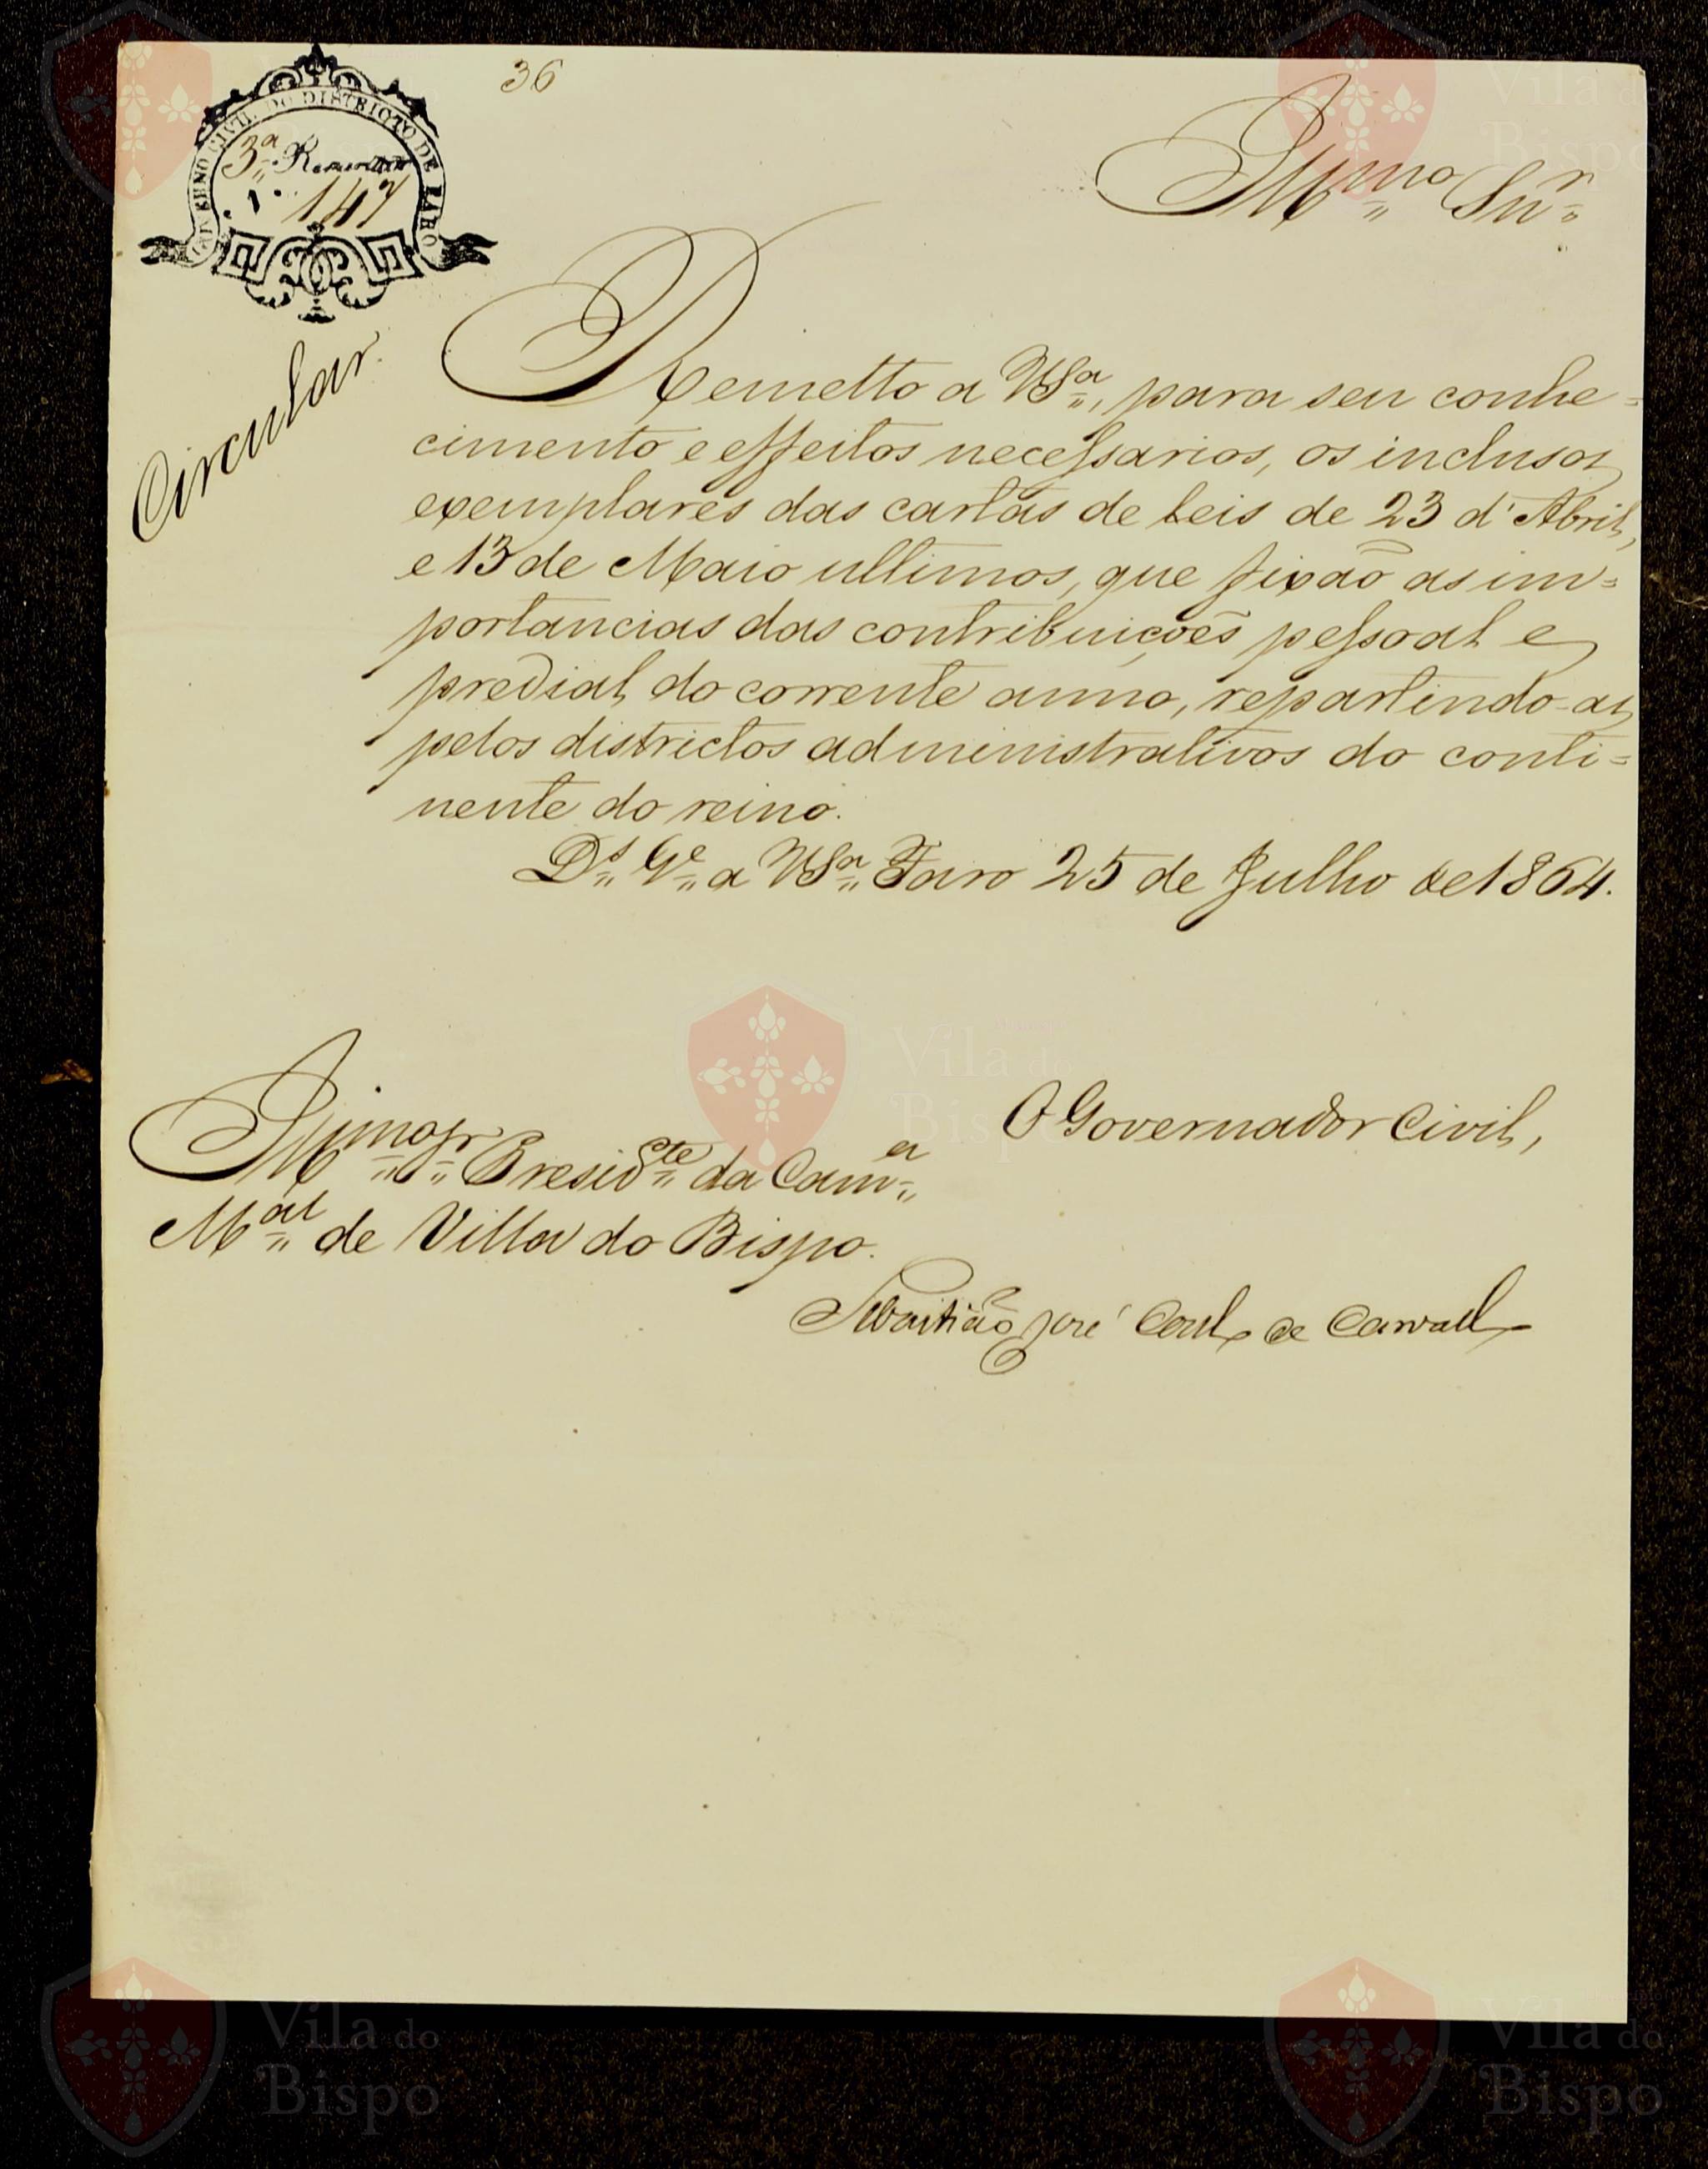 36
GOVERNO CIVIL DO DISTRICTO DE FARO
3ª Repartição
Nº 147
Illmo Snr
Circular.
Remetto a VSª, para seu conhe=
cimento e effeitos necessarios, os inclusos
exemplares das cartas de Leis de 23 d'Abril,
e 13 de Maio ultimos, que fixão as im=
portancias das contribuições pessoal e
predial, do corrente anno, repartindo-as
pelos districtos administrativos do conti=
nente do reino.
Ds Ge a VSª Faro 25 de Julho de 1864.
O Governador Civil,
Illmo Sr Presidte da Camª
Mal de Villa do Bispo.
Sebastião José de Carvalho
Vila do
Bispo
Vila do
Bispo
Vila do
Bispo
Vila do
Bispo